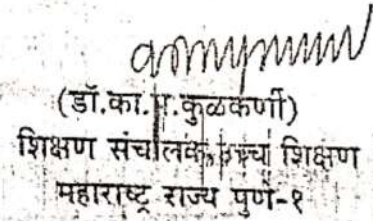 (डॉ.का.प.कुळकर्णी)
शिक्षण संचालक, उच्च शिक्षण
महाराष्ट्र राज्य पुणे-१